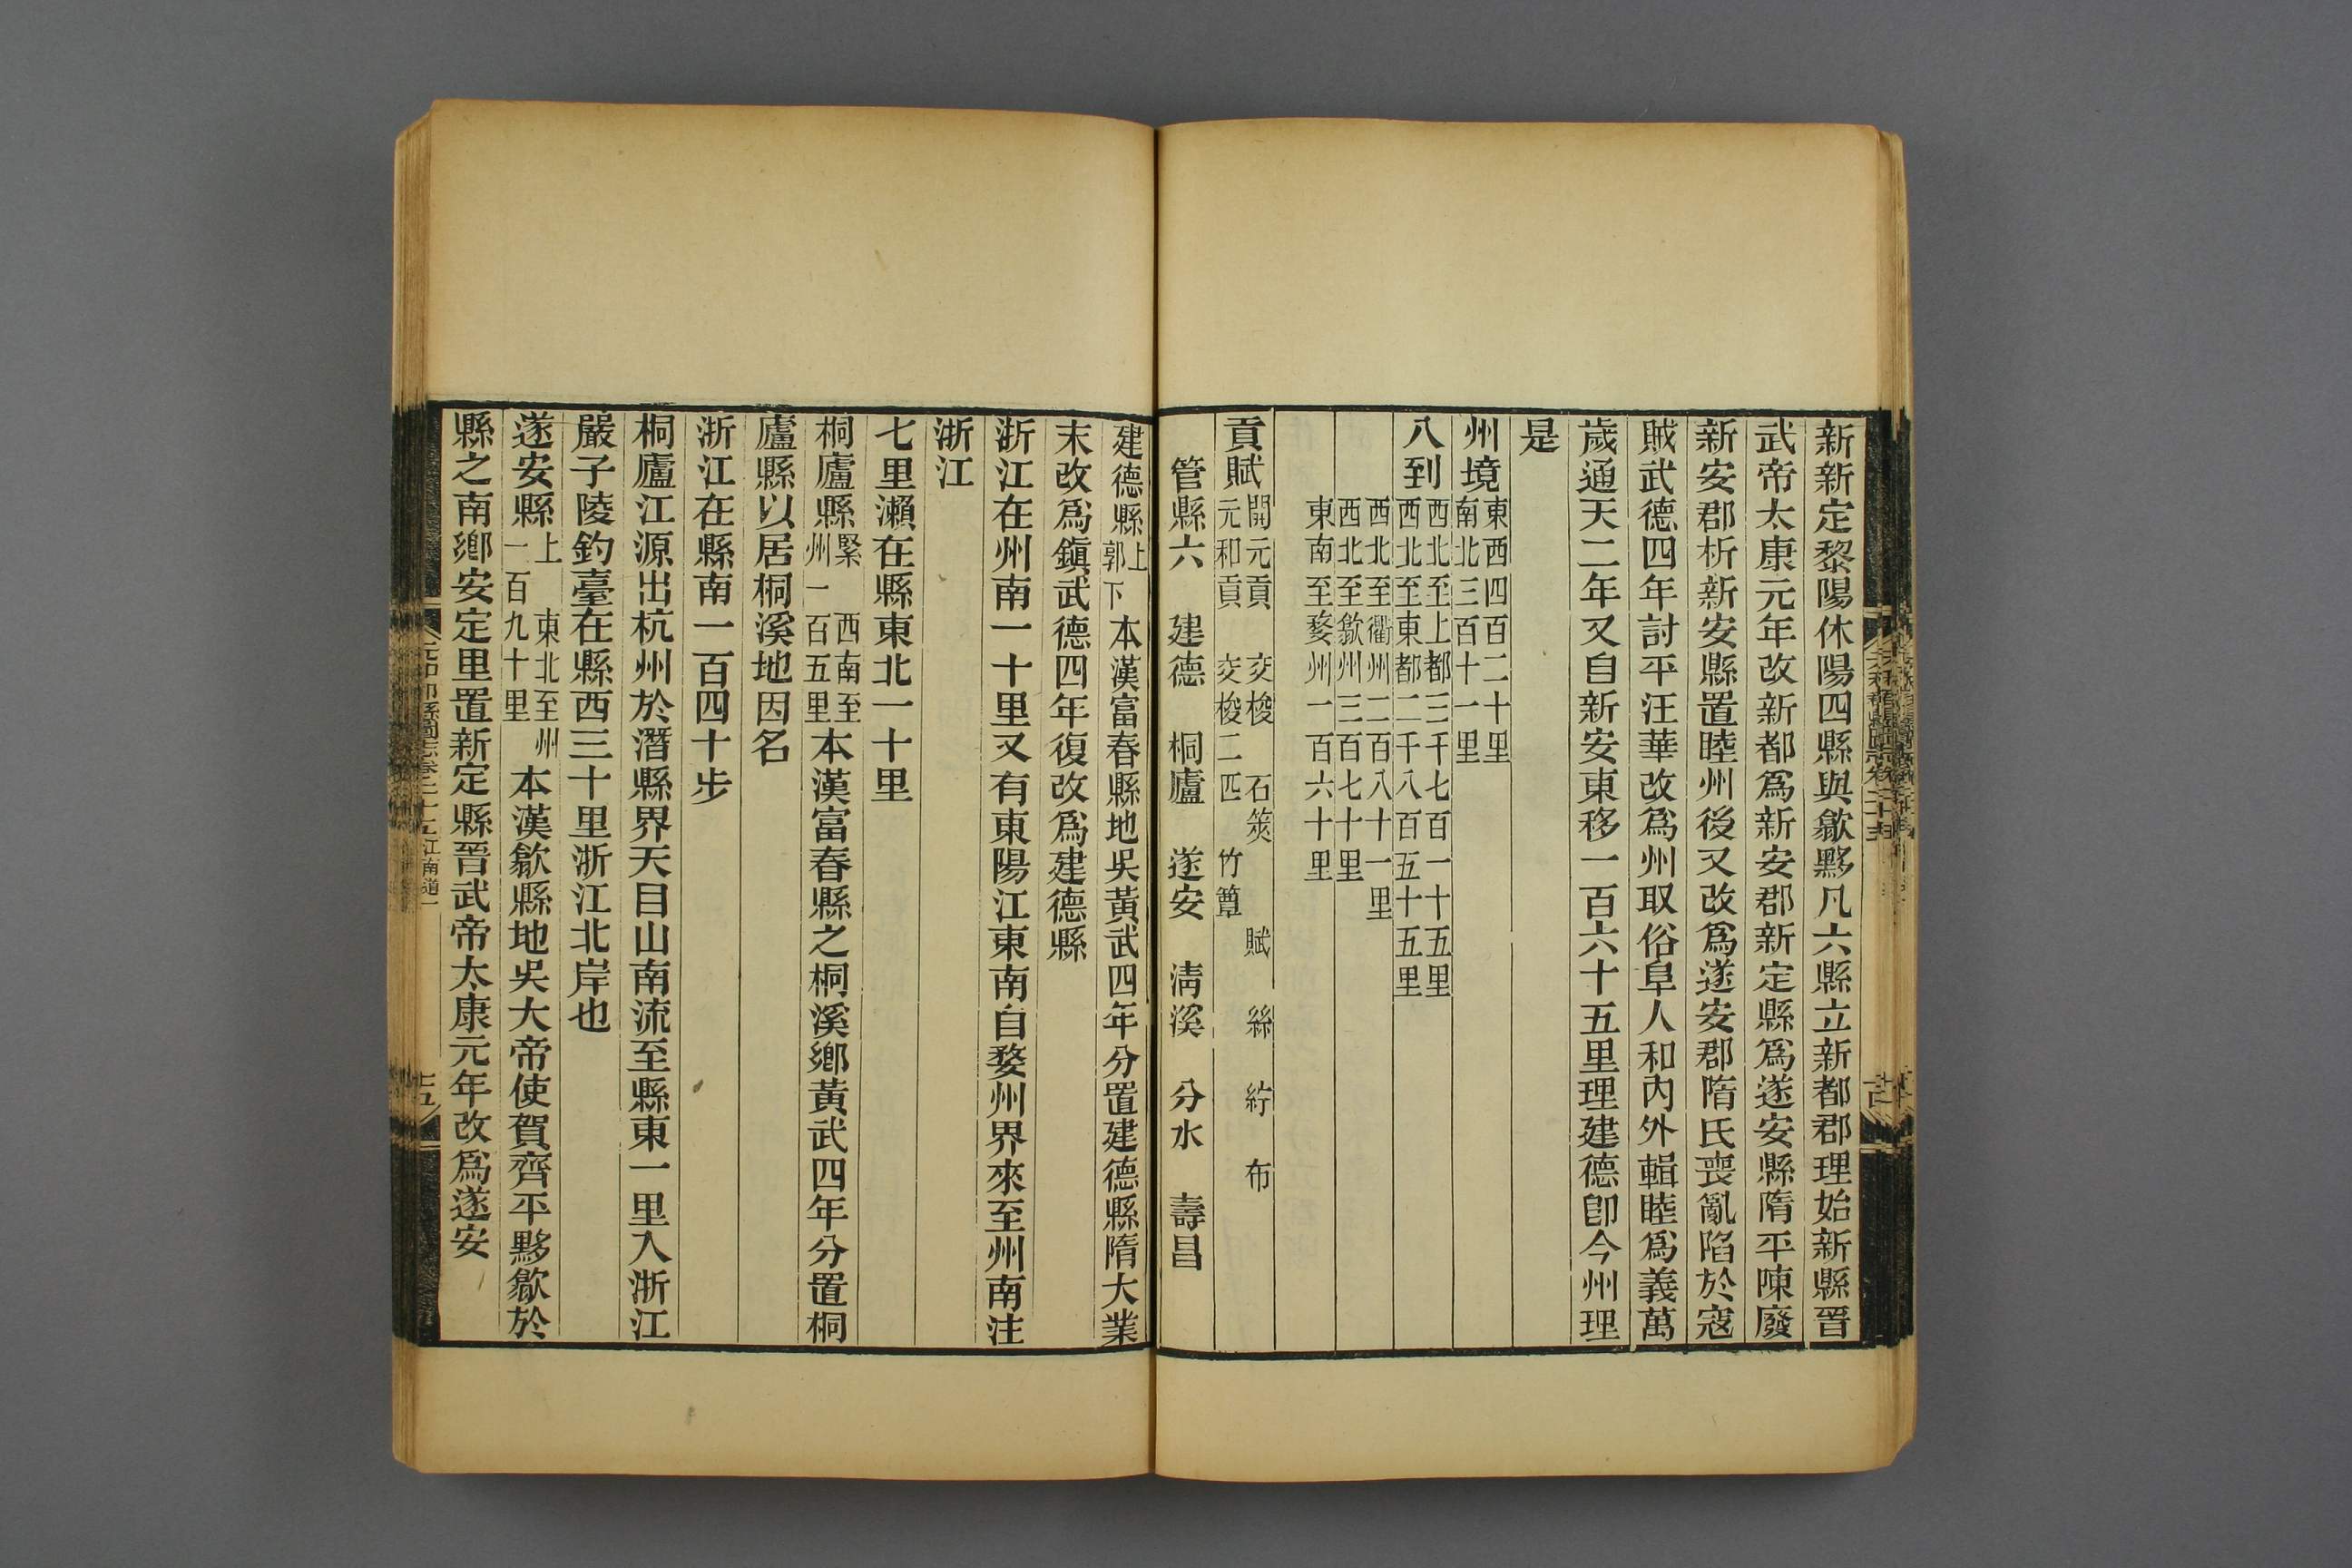 新新定黎陽休陽四縣與歙黟凡六縣立新都郡理始新縣晉
武帝太康元年改新都爲新安郡新定縣爲遂安縣隋平陳廢
新安郡析新安縣置睦州後又改爲遂安郡隋氏喪亂陷於寇
賊武德四年討平汪華改爲州取俗阜人和內外輯睦爲義萬
歲通天二年又自新安東移一百六十五里理建德卽今州理
是
州境東西四百二十里
南北三百十一里
八到西北至上都三千七百一十五里
西北至東都二千八百五十五里
西北至衢州二百八十一里
西北至歙州三百七十里
東南至婺州一百六十里
貢賦開元貢 交梭 石筴 賦 絲 紵 布
元和貢 交梭二匹 竹簟
管縣六 建德 桐廬 遂安 淸溪 分水 壽昌
建德縣上
郭下
本漢富春縣地吳黃武四年分置建德縣隋大業
末改爲鎭武德四年復改爲建德縣
浙江在州南一十里又有東陽江東南自婺州界來至州南注
浙江
七里瀨在縣東北一十里
桐廬縣緊 西南至
州一百五里
本漢富春縣之桐溪鄉黃武四年分置桐
廬縣以居桐溪地因名
浙江在縣南一百四十步
桐廬江源出杭州於潛縣界天目山南流至縣東一里入浙江
嚴子陵釣臺在縣西三十里浙江北岸也
遂安縣上 東北至州
一百九十里
本漢歙縣地吳大帝使賀齊平黟歙於
縣之南鄉安定里置新定縣晉武帝太康元年改爲遂安
元和郡縣圖志卷二十五江南道一
十五